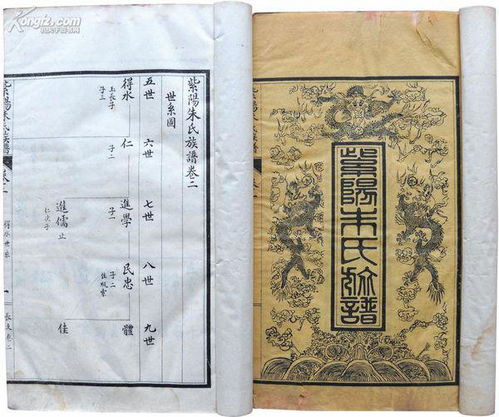 Kongfz.com
紫陽朱氏族譜卷二
世系圖
五世 六世 七世 八世 九世
得水
子三
仁
子二
進學
子一
民忠
子二
體
進儒止
仁次子
佳
紫陽朱氏族譜
卷二
得水世系
一
紫陽朱氏族譜